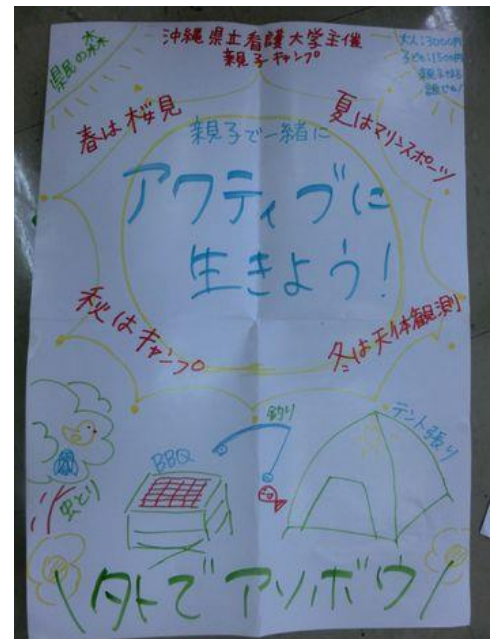 県民の森
沖縄県立看護大学主催
親子キャンプ
大人:3000円
子ども:1500円
春は桜見
夏はマリンスポーツ
親子で一緒に
アクティブに
生きよう!
秋はキャンプ
冬は天体観測
虫とり
BBQ
釣り
テント張り
\外でアソボウ/